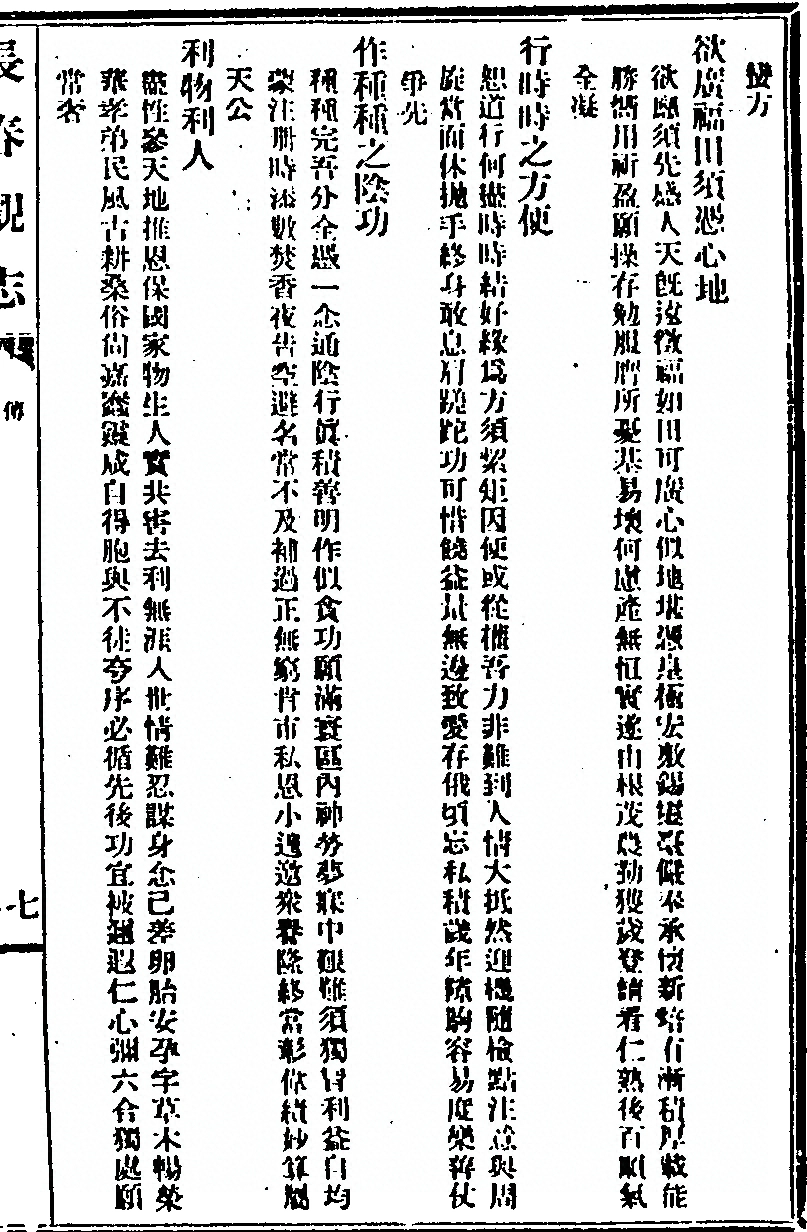 方
欲廣福田須憑心地
欲應須先感人天旣遠徵福如田可廣心似地堪憑皇極宏敷錫群儼奉承培有漸積厚載能
勝嘗用祈盈願操存勉服膺所憂基易壞何慮產無恒實遂由根茂農勤獲歲登請看仁熟後百順氣
全凝
行時時之方便
恕道行何礙時時結好緣爲方須絜矩因便或從權吾力非難到人情大抵然迎機隨檢點注意與周
旋當面休拋手終身敢息肩蹉跎功可惜饒益量無邊致愛存俄頃忘私積歲年隨胸容易度樂善仗
爭先
作種種之陰功
種種完吾分全憑一念通陰行眞積善明作似貪功願滿寰區內神勞夢寐中艱難須獨冒利益自均
蒙注册時添數焚香夜告空避名常不及補過正無窮肯市私恩小還邀衆譽隆終當彰偉績妙算屬
天公
利物利人
盡性參天地推恩保國家物生人實共害去利無涯人世情難忍謀身念已差卵胎安孕字草木暢榮
華孝弟民風古耕桑俗尙嘉靈成自得胞與不徒夸序必循先後功宜被邇遐仁心彌六合獨處願
常奢
長春觀志
傳
七